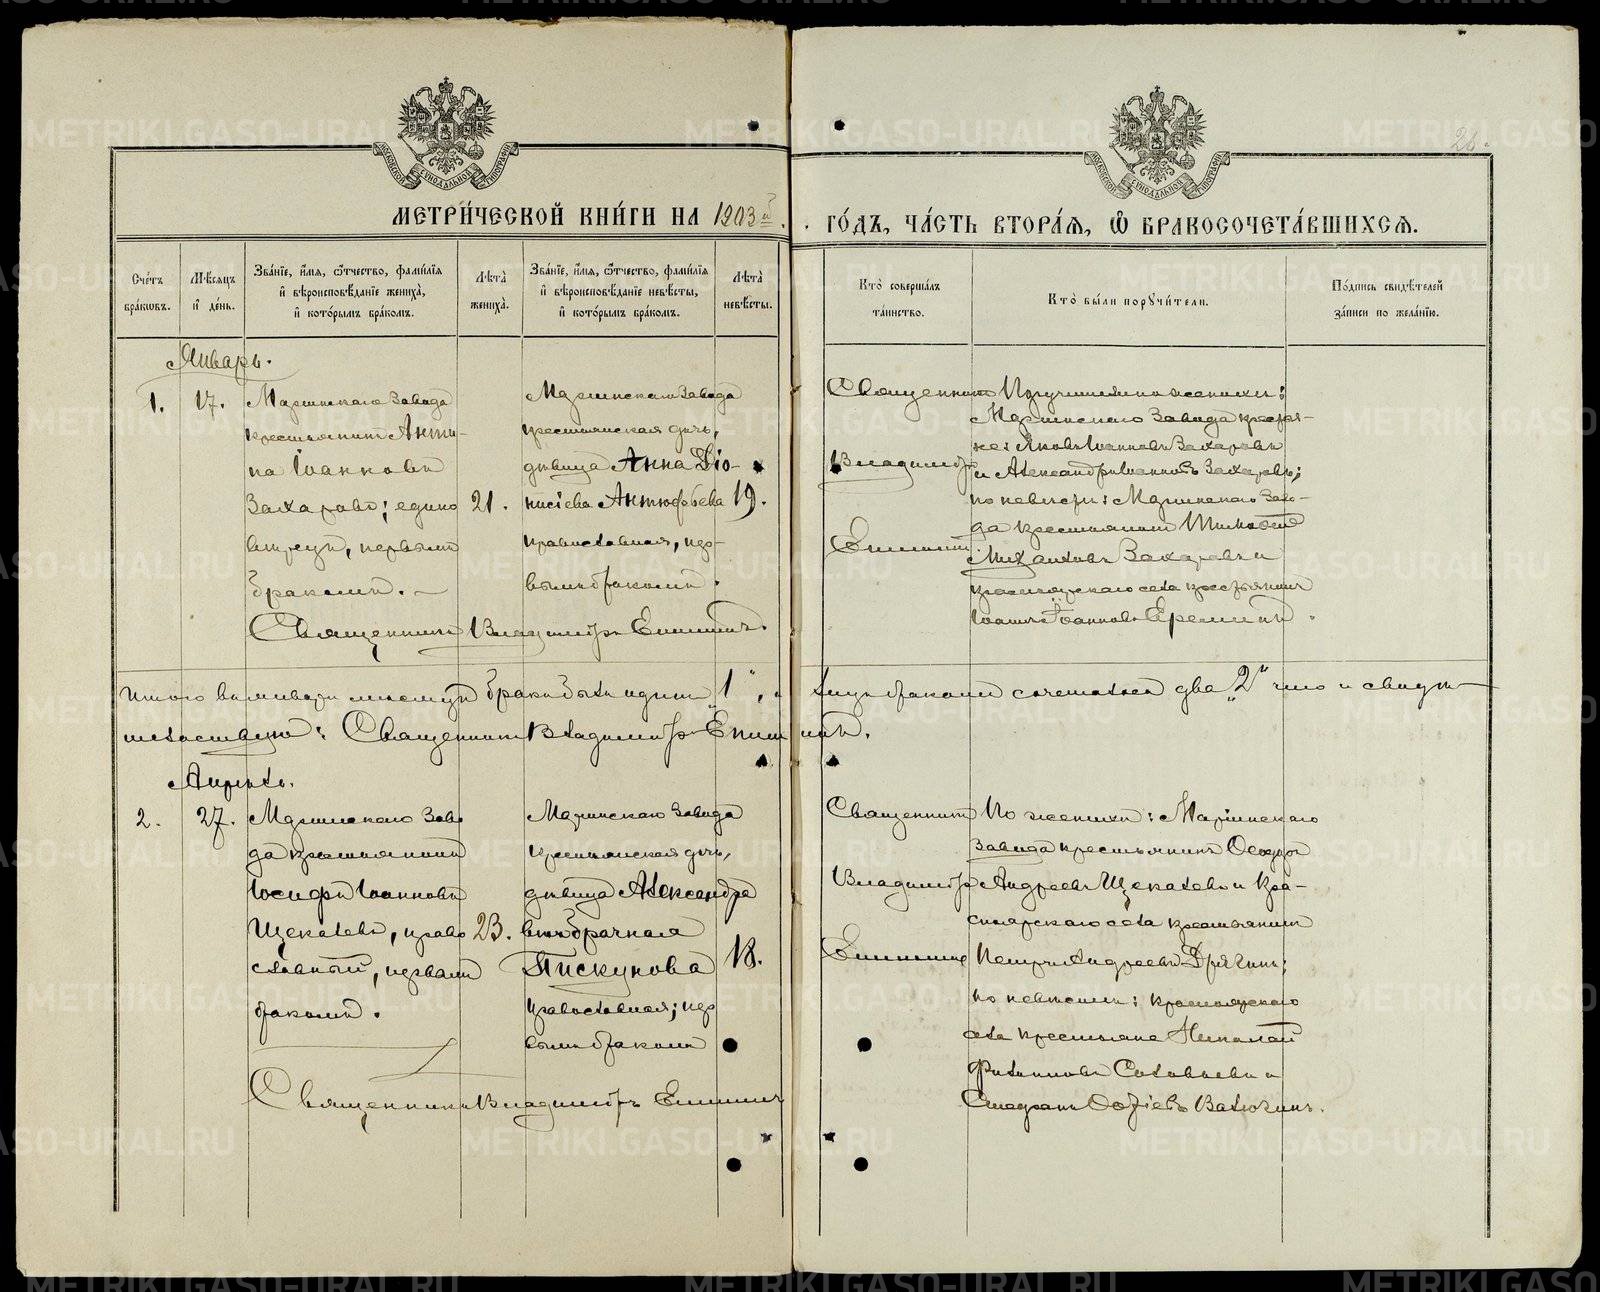 МЕТРИ́ЧЕСКОЙ КНИ́ГИ НА 1903 й
ГО́ДЪ, ЧА́СТЬ ВТОРА́Я, Ѽ БРАКОСОЧЕТА́ВШИХСЯ.
26.
Сче́тъ бра́кѡвъ.
Мѣ́сяцъ и҆ де́нь.
Зва́нїе, и҆́мя, ѻ҆́тчество, фамилі́я и҆ вѣроисповѣ́данїе жениха̀, и҆ кото́рымъ бра́комъ.
Лѣта̀ жениха̀.
Зва́нїе, и҆́мя, ѻ҆́тчество, фамилі́я и҆ вѣроисповѣ́данїе невѣ́сты, и҆ кото́рымъ бра́комъ.
Лѣта̀ невѣ́сты.
Кто̀ соверша́лъ та́инство.
Кто̀ бы́ли порꙋчи́тели.
По́дпись свидѣ́телей за́писи по жела́нїю.
Январь.
1.
17.
Маріинскаго Завода
крестьянинъ Анти-
па Іоанновъ
Захаровъ; едино
вѣрецъ, первымъ
бракомъ.
21.
Маріинскаго Завода
крестьянская дочь,
дѣвица Анна Діо-
нисіева Антюфѣева
православная, пер-
вымъ бракомъ.
19.
Священникъ
Владиміръ
Епишинъ
Поручители по женихѣ:
Маріинскаго Завода крестья-
не: Яковъ Іоанновъ Захаровъ
и Александръ Іоанновъ Захаровъ;
по невѣстѣ: Маріинскаго Заво-
да крестьянинъ
Михаиловъ Захаровъ и
Красноярскаго села крестьянинъ
Іоаннъ Іоанновъ Еремин
Священникъ Владиміръ Епишинъ.
Итого въ январѣ мѣсяцѣ браковъ былъ одинъ „1", лицъ бракомъ сочеталось два „2" что и свидѣ-
тельствую: Священникъ Владиміръ Епишинъ.
Апрѣль.
2.
27.
Маріинскаго Заво
да крестьянинъ
Іосифъ Іоанновъ
Щекалевъ, право
славный, первымъ
бракомъ.
23.
Маріинскаго Завода
крестьянская дочь,
дѣвица Александра
внѣбрачная
Пискунова
православная; пер
вымъ бракомъ
18.
Священникъ
Владиміръ
Епишинъ
По женихѣ: Маріинскаго
Завода крестьянинъ Ѳеодоръ
Андреевъ Щекалевъ и Кра-
сноярскаго села крестьянинъ
Петръ Андреевъ Дрягинъ;
по невѣстѣ: Красноярскаго
села крестьяне Николай
Филипповъ Соловьевъ и
Валюгинъ.
Священникъ Владиміръ Епишинъ
METRIKI.GASO-URAL.RU